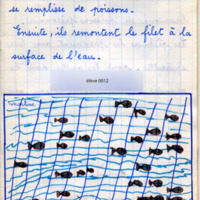 se remplisse de poissons.
Ensuite, ils remontent le filet à la
surface de l'eau.
élève 0012